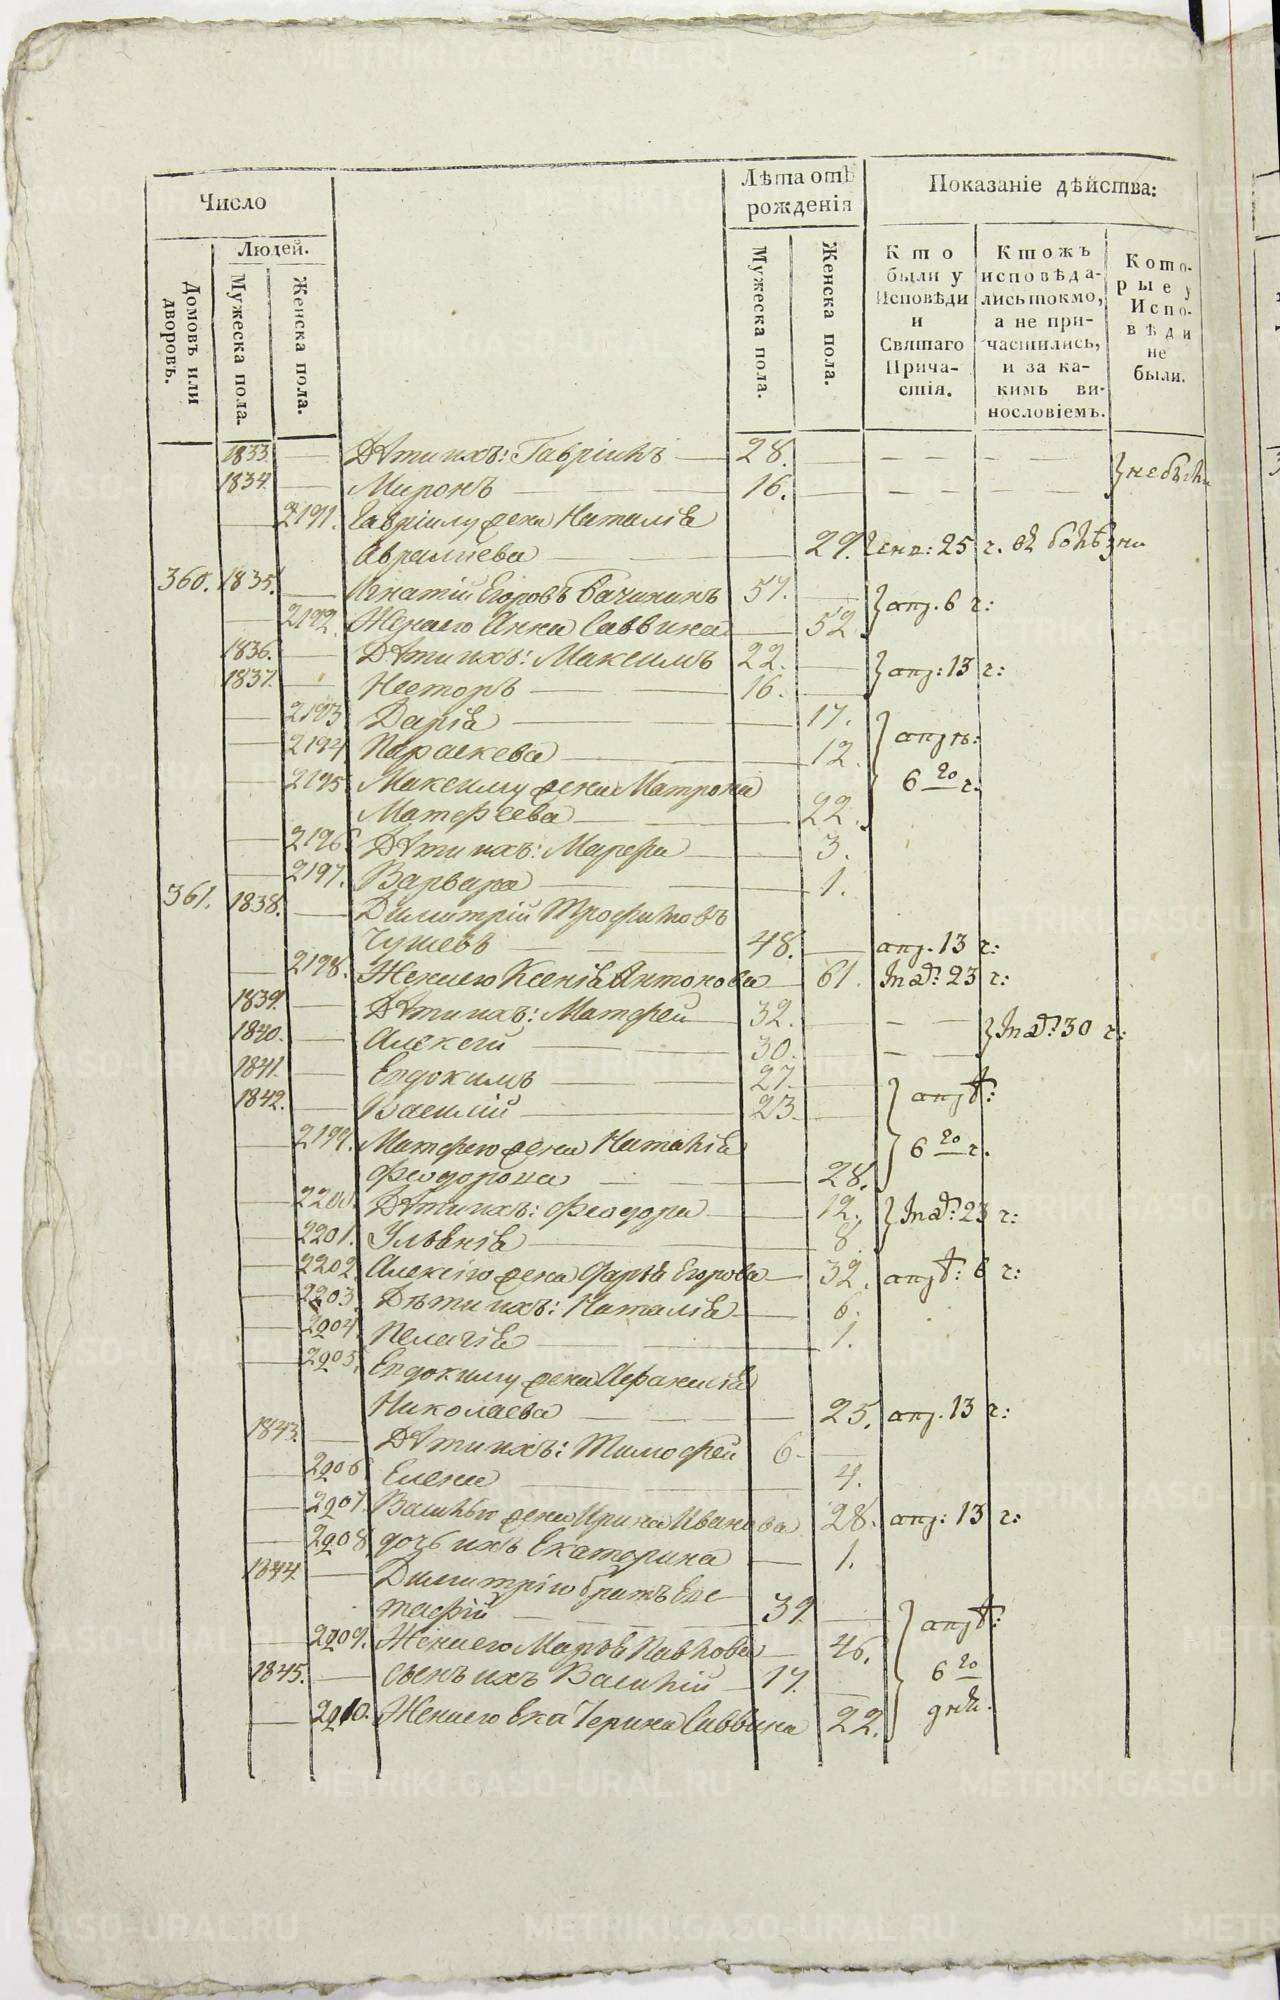 Число
Лѣта отъ рожденія
Показаніе дѣйства:
Людей.
Домовъ или дворовъ.
Мужеска пола.
Женска пола.
Мужеска пола.
Женска пола.
Кто были у Исповѣди и Святаго Причастія.
Ктожъ исповѣдались токмо, а не причастились, и за какимъ винословіемъ.
Которые у Исповѣди не были.
1833. Дѣти ихъ: Гавріилъ 28.
1834. Миронъ 16. не были
2191. Гавріилу жена Наталія
Аврамиева 29. генв: 25 ч. въ болѣзни
360. 1835. Игнатій Егоровъ Бачининъ 57.
2192. Жена его Анна Саввина 52. апр. 6 ч:
1836. Дѣти ихъ: Максимъ 22.
1837. Несторъ 16. апр: 13 ч:
2193. Дарія 17.
2194. Параскева 12. апрѣ:
2195. Максиму жена Матрона 6го ч.
Матфеева 22.
2196. Дѣти ихъ: Марфа 3.
2197. Варвара 1.
361. 1838. Димитрій Трофимовъ
48. апр. 13 ч:
2198. Жена его Ксенія Антонова 61. 23 ч:
1839. Дѣти ихъ: Матфей 32.
1840. Алексій 30. 30 ч:
1841. Евдокимъ 27.
1842. Василій 23. апрѣ:
2199. Матфею жена Наталія 6го ч.
Феодорова 28.
2200. Дѣти ихъ: Феодора 12. 23 ч:
2201. Уліанія 8.
2202. Алексію жена Дарія Егорова 32. апрѣ: 6 ч:
2203. Дѣти ихъ: Наталія 6.
2204. Пелагія 1.
2205. Евдокиму жена Афанасія
Николаева 25. апр. 13 ч:
1843. Дѣти ихъ: Тимофей 6.
2206. Елена 4.
2207. Василью жена Ирина Иванова 28. апр: 13 ч:
2208. дочь ихъ Екатерина 1.
1844. Димитрію братъ Евс
тафій 39.
2209. Жена его Марія Павлова 46. апрѣ:
1845. сынъ ихъ Василій 17. 6го
2210. Жена его Екатерина Саввина 22. дня.
METRIKI.GASO-URAL.RU